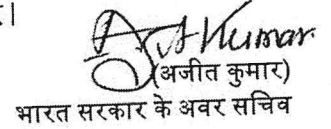 ।
Ajit Kumar
(अजीत कुमार)
भारत सरकार के अवर सचिव